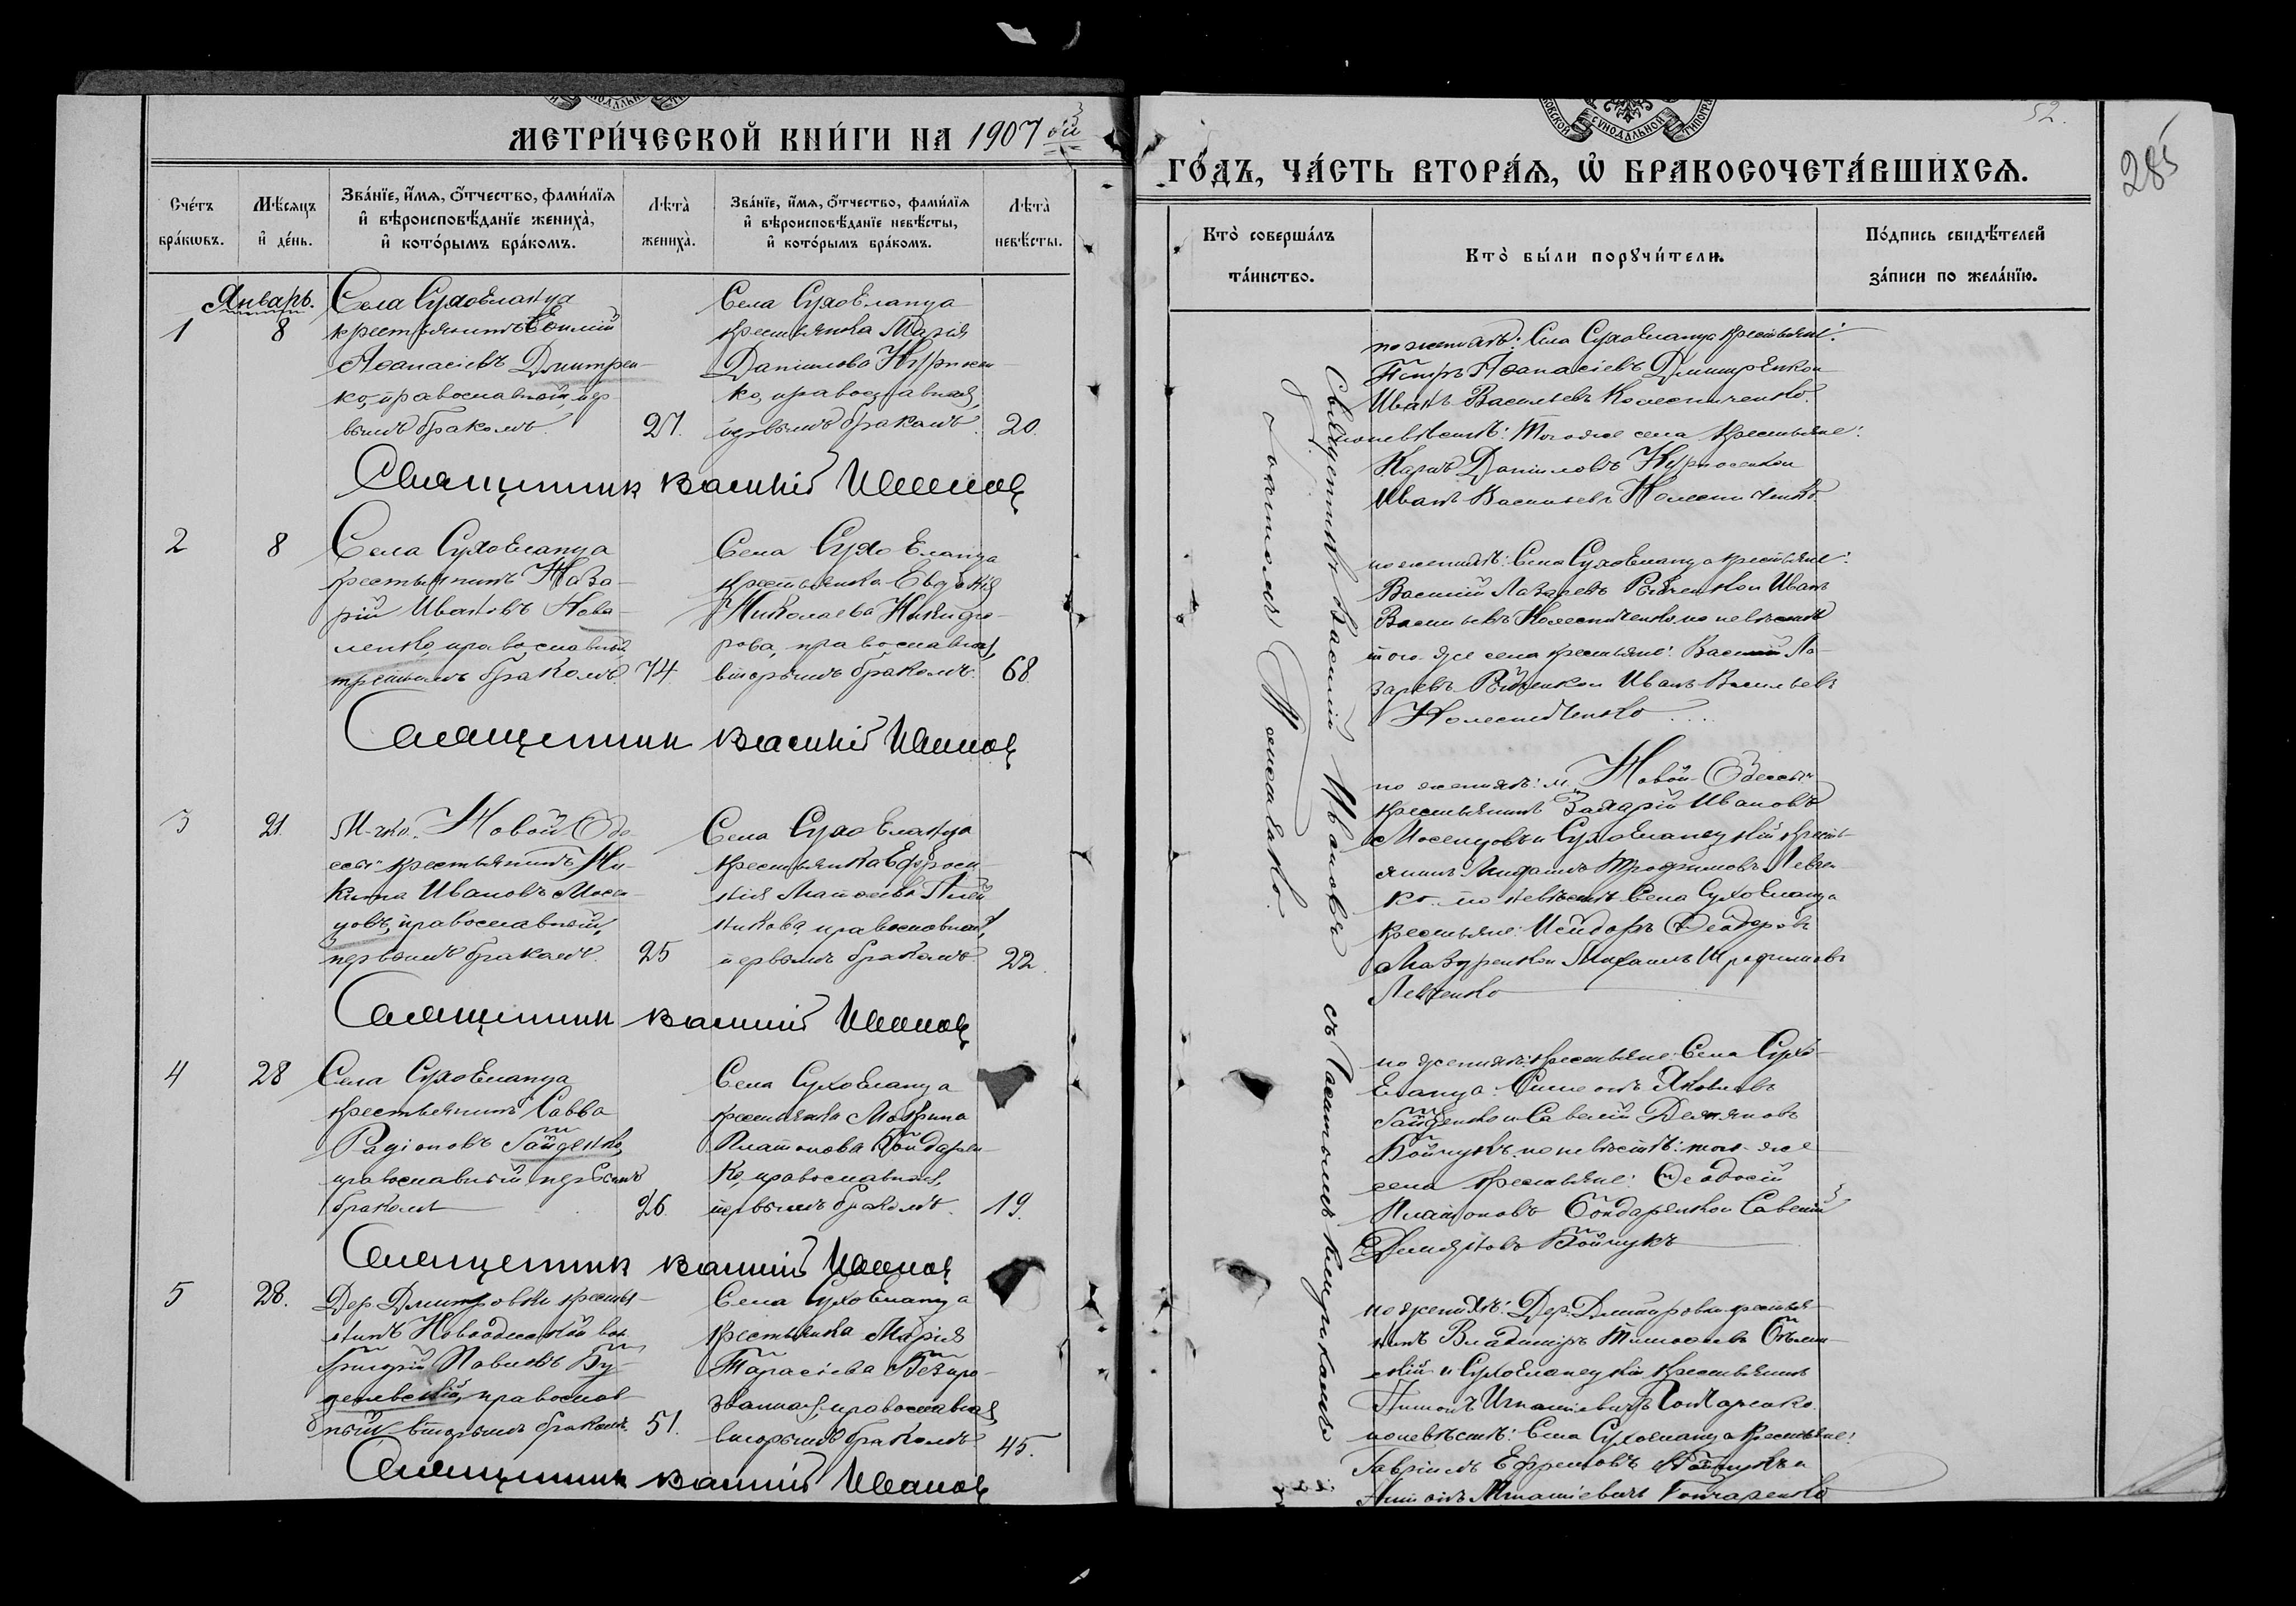 МЕТРИ́ЧЕСКОЙ КНИ́ГИ НА 1907 ой
Сче́тъ бра́кωвъ.
Мѣ́сяцъ и҆ де́нь.
Зва́нїе, и҆́мѧ, ѻ҆́тчество, фами́лїѧ и҆ вѣроисповѣ́данїе жениха̀, и҆ кото́рымъ бра́комъ.
Лѣ̑та̀ жениха̀.
Зва́нїе, и҆́мѧ, ѻ҆́тчество, фами́лїѧ и҆ вѣроисповѣ́данїе невѣ́сты, и҆ кото́рымъ бра́комъ.
Лѣ̑та̀ невѣ́сты.
Январь.
1
8
Села СухоЕланца
крестьянинъ
Аѳанасіевъ Дмитрен-
ко, православный, пер-
вымъ бракомъ.
27.
Села СухоЕланца
крестьянка Марья
Даніилова
ко, православная,
первымъ бракомъ.
20.
Священник Василий Иванов
2
8
Села СухоЕланца
крестьянинъ Наза-
рій Ивановъ Кова-
ленко, православный,
третьимъ бракомъ.
74.
Села СухоЕланца
крестьянка Евдокія
Николаева Никифо-
рова, православная,
вторымъ бракомъ.
68
Священник Василий Иванов
3
21.
М-чка. Новой-Оде-
ссы крестьянинъ Ни-
кита Ивановъ Мосен-
цовъ, православный,
первымъ бракомъ.
25
Села СухоЕланца
крестьянка Ефроси-
нія
православная,
первымъ бракомъ
22.
Священник Василий Иванов
4
28
Села СухоЕланца
крестьянинъ Савва
Радіоновъ Гайденко,
православный первымъ
бракомъ
26.
Села СухоЕланца
крестьянка Мокрина
Платонова Бондарен-
ко, православная,
первымъ бракомъ.
19.
Священник Василий Иванов
5
28.
Дер. Дмитровки крестья-
нинъ Новоодесской вол.
Григорій Павловъ Бу-
православ-
ный, вторымъ бракомъ.
51.
Села СухоЕланца
крестьянка Марія
Тарасіева
православная
вторымъ бракомъ
45.
Священник Василий Иванов
52.
285
ГО́ДЪ, ЧА́СТЬ ВТОРА́Ѧ, Ѡ҆ БРАКОСОЧЕТА́ВШИХСѦ.
Кто̀ соверша́лъ та́инство.
Кто̀ бы́ли порꙋчи́тели.
По́дпись свидѣ́телей за́писи по жела́нїю.
Священникъ Василій Ивановъ съ
по женихѣ: Села СухоЕланца крестьяне:
Петръ Аѳанасіевъ Дмитренко и
Иванъ Васильевъ Колесниченко.
по невѣстѣ: того же села крестьяне:
Карпъ Даніиловъ
Иванъ Васильевъ Колесниченко
по женихѣ: Села СухоЕланца крестьяне:
Василий Лазаревъ и Иванъ
Васильевъ Колесниченко, по невѣстѣ
того же села крестьяне: Василий Ла-
заревъ и Иванъ Васильевъ
Колесниченко
по женихѣ: м. Новой-Одессы
крестьянинъ Захарій Ивановъ
Мосенцовъ и СухоЕланецкій кресть-
янинъ Михаилъ Трофимовъ Левчен-
ко. по невѣстѣ Села СухоЕланца
крестьяне: Исидоръ Феодоровъ
Мазуренко и Михаилъ Трофимовъ
Левченко
по женихѣ: крестьяне Села Сухо-
Еланца: Симеонъ Яковлевъ
Гайденко и Савелій Демяновъ
Бойчукъ. по невѣстѣ: того-же
села крестьяне: Феодосій
Платоновъ Бондаренко и Савелій
Демяновъ Бойчукъ
по женихѣ: Дер. Дмитровки крестья-
нинъ Владиміръ Тимоѳеевъ
и СухоЕланецкій крестьянинъ
Антонъ Игнатіевичъ Гончаренко.
по невѣстѣ: Села СухоЕланца крестьяне:
Гавріилъ Ефремовъ
Антонъ Игнатіевичъ Гончаренко